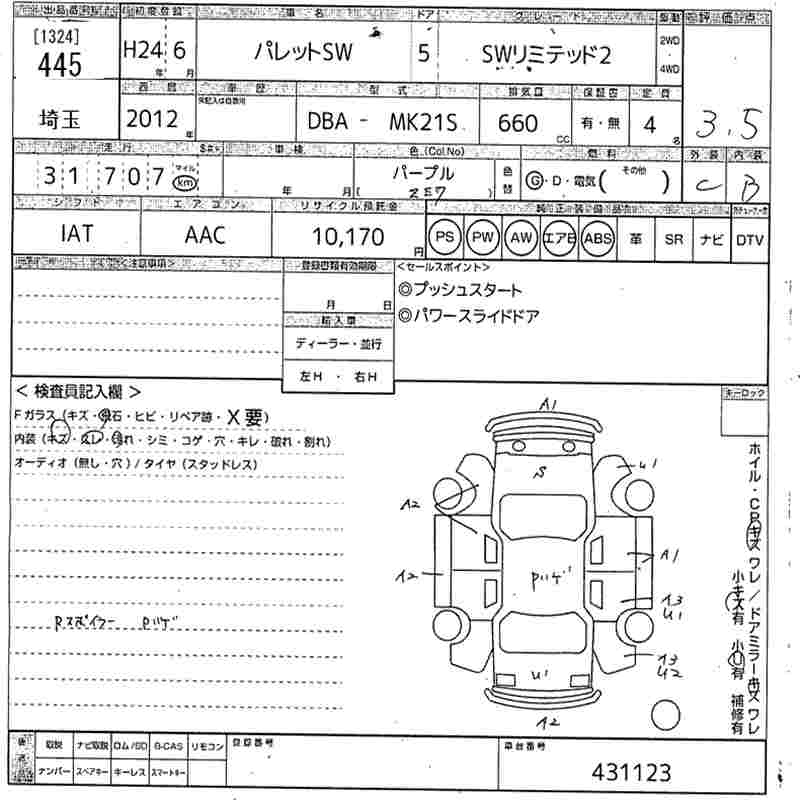 出品番号 初度登録 車名 ドア グレード 駆動 評価点
[1324]
445 H24 6 パレットSW 5 SWリミテッド2 2WD 4WD 3.5
年 月
西暦 車歴 型式 排気量 保証書 定員
埼玉 2012 年 DBA - MK21S 660 CC 有・無 4 名
走行 車検 色(Col No) 燃料 外装 内装
31,707 マイル km 年 月 パープル 色替 G・D・電気(その他) C B
ZE7
シフト エアコン リサイクル預託金 純正装備品
IAT AAC 10,170 円 PS PW AW エアB ABS 革 SR ナビ DTV
<注意事項> 登録書類有効期限 <セールスポイント>
月 日 ◎プッシュスタート
輸入車 ◎パワースライドドア
ディーラー・並行
左H・右H
< 検査員記入欄 > キーロック
Fガラス (キズ・飛石・ヒビ・リペア跡・X要)
内装 (キズ・汚レ・汚れ・シミ・コゲ・穴・キレ・破れ・割れ)
オーディオ (無し・穴) / タイヤ (スタッドレス)
A1
S
U1
A2
A1
A2
Pハゲ
A3
U1
Rスポイラー Pハゲ
A3
U2
U1
A2
ホイル・CPキズ ワレ / ドアミラーキズ ワレ
小キズ有 小U有 補修有
後送品 取説 ナビ取説 ロム/SD B-CAS リモコン 登録番号 車台番号
ナンバー スペアキー キーレス スマートキー 431123